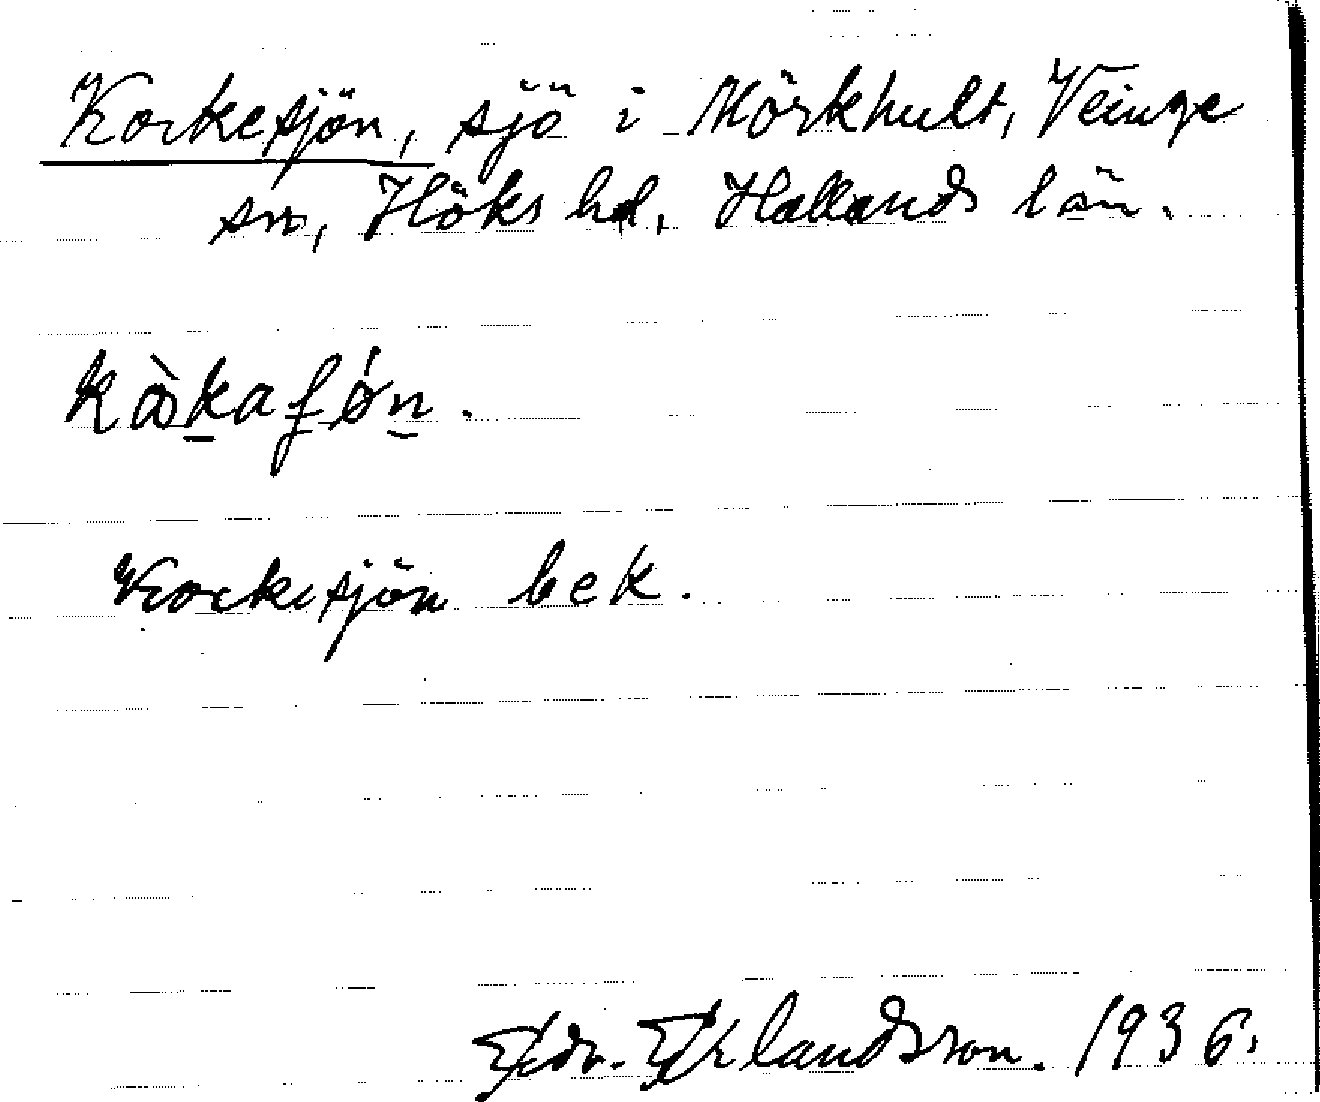 Korkesjön, sjö i Mörkhult, Veinge
sn, Höks hd, Hallands län.
Korkesjön bek.
1936.